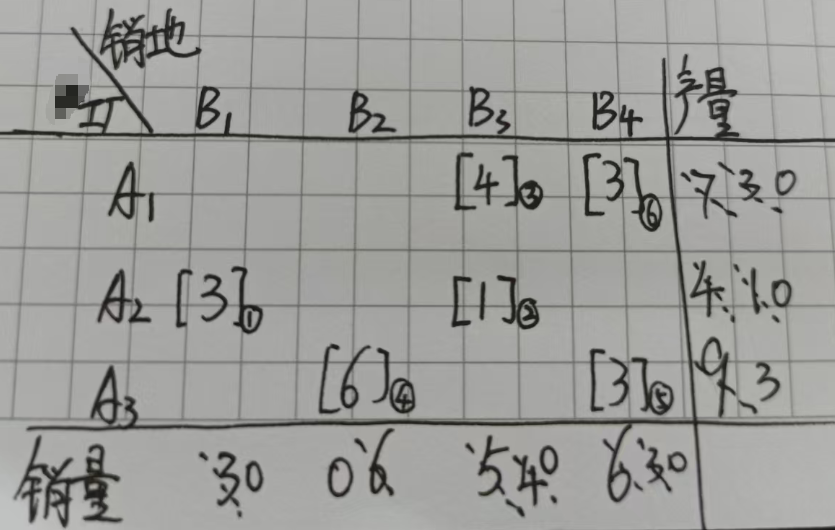 销地
工 B₁ B₂ B₃ B₄ 产量
A₁ [4]③ [3]⑥ 7 3 0
A₂ [3]① [1]② 4 1 0
A₃ [6]④ [3]⑤ 9 3
销量 3 0 0 6 5 4 0 6 3 0